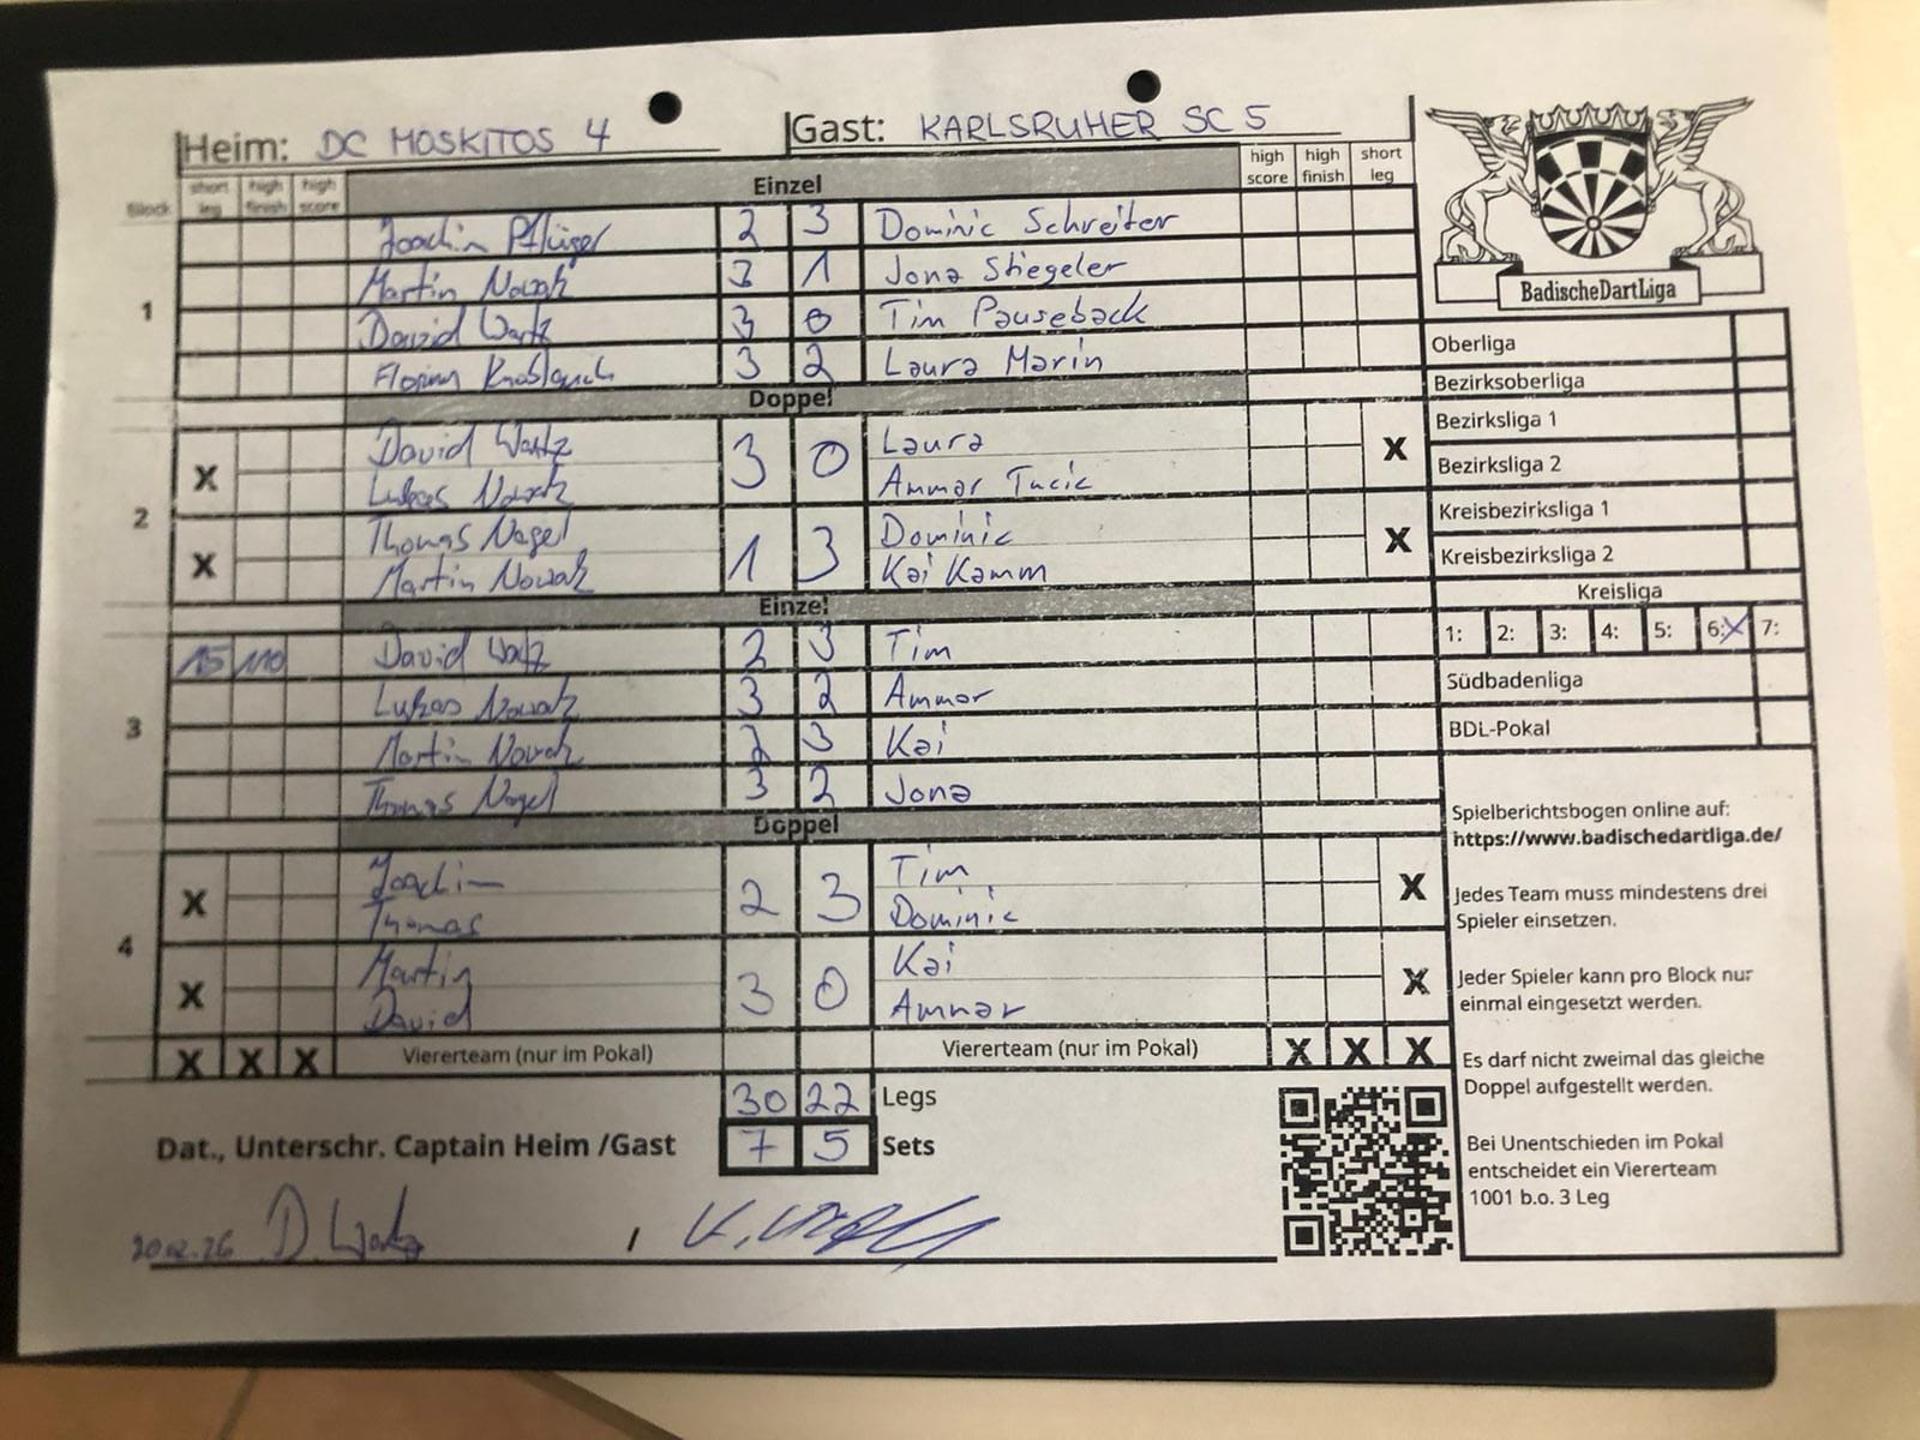 Heim: DC MOSKITOS 4 Gast: KARLSRUHER SC 5
Block short leg high finish high score Einzel high score high finish short leg
Joachim Pflüger 2 3 Dominic Schreiter
Martin Nowak 3 1 Jona Stiegeler
1
David Wartz 3 0 Tim Pauseback
Florian Knoblauch 3 2 Laura Marin
Doppel
David Wartz 3 0 Laura
X X
Lukas Nowak Ammar Tucic
2
Thomas Nagel 1 3 Dominic
X X
Martin Nowak Kai Kamm
Einzel
15 110 David Wartz 2 3 Tim
Lukas Nowak 3 2 Ammar
3
Martin Nowak 2 3 Kai
Thomas Nagel 3 2 Jona
Doppel
Joachim 2 3 Tim
X X
Thomas Dominic
4
Martin 3 0 Kai
X X
David Ammar
X X X Viererteam (nur im Pokal) Viererteam (nur im Pokal) X X X
30 22 Legs
Dat., Unterschr. Captain Heim /Gast 7 5 Sets
D. Wartz /
BadischeDartLiga
Oberliga
Bezirksoberliga
Bezirksliga 1
Bezirksliga 2
Kreisbezirksliga 1
Kreisbezirksliga 2
Kreisliga
1: 2: 3: 4: 5: 6: X 7:
Südbadenliga
BDL-Pokal
Spielberichtsbogen online auf:
https://www.badischedartliga.de/
Jedes Team muss mindestens drei
Spieler einsetzen.
Jeder Spieler kann pro Block nur
einmal eingesetzt werden.
Es darf nicht zweimal das gleiche
Doppel aufgestellt werden.
Bei Unentschieden im Pokal
entscheidet ein Viererteam
1001 b.o. 3 Leg